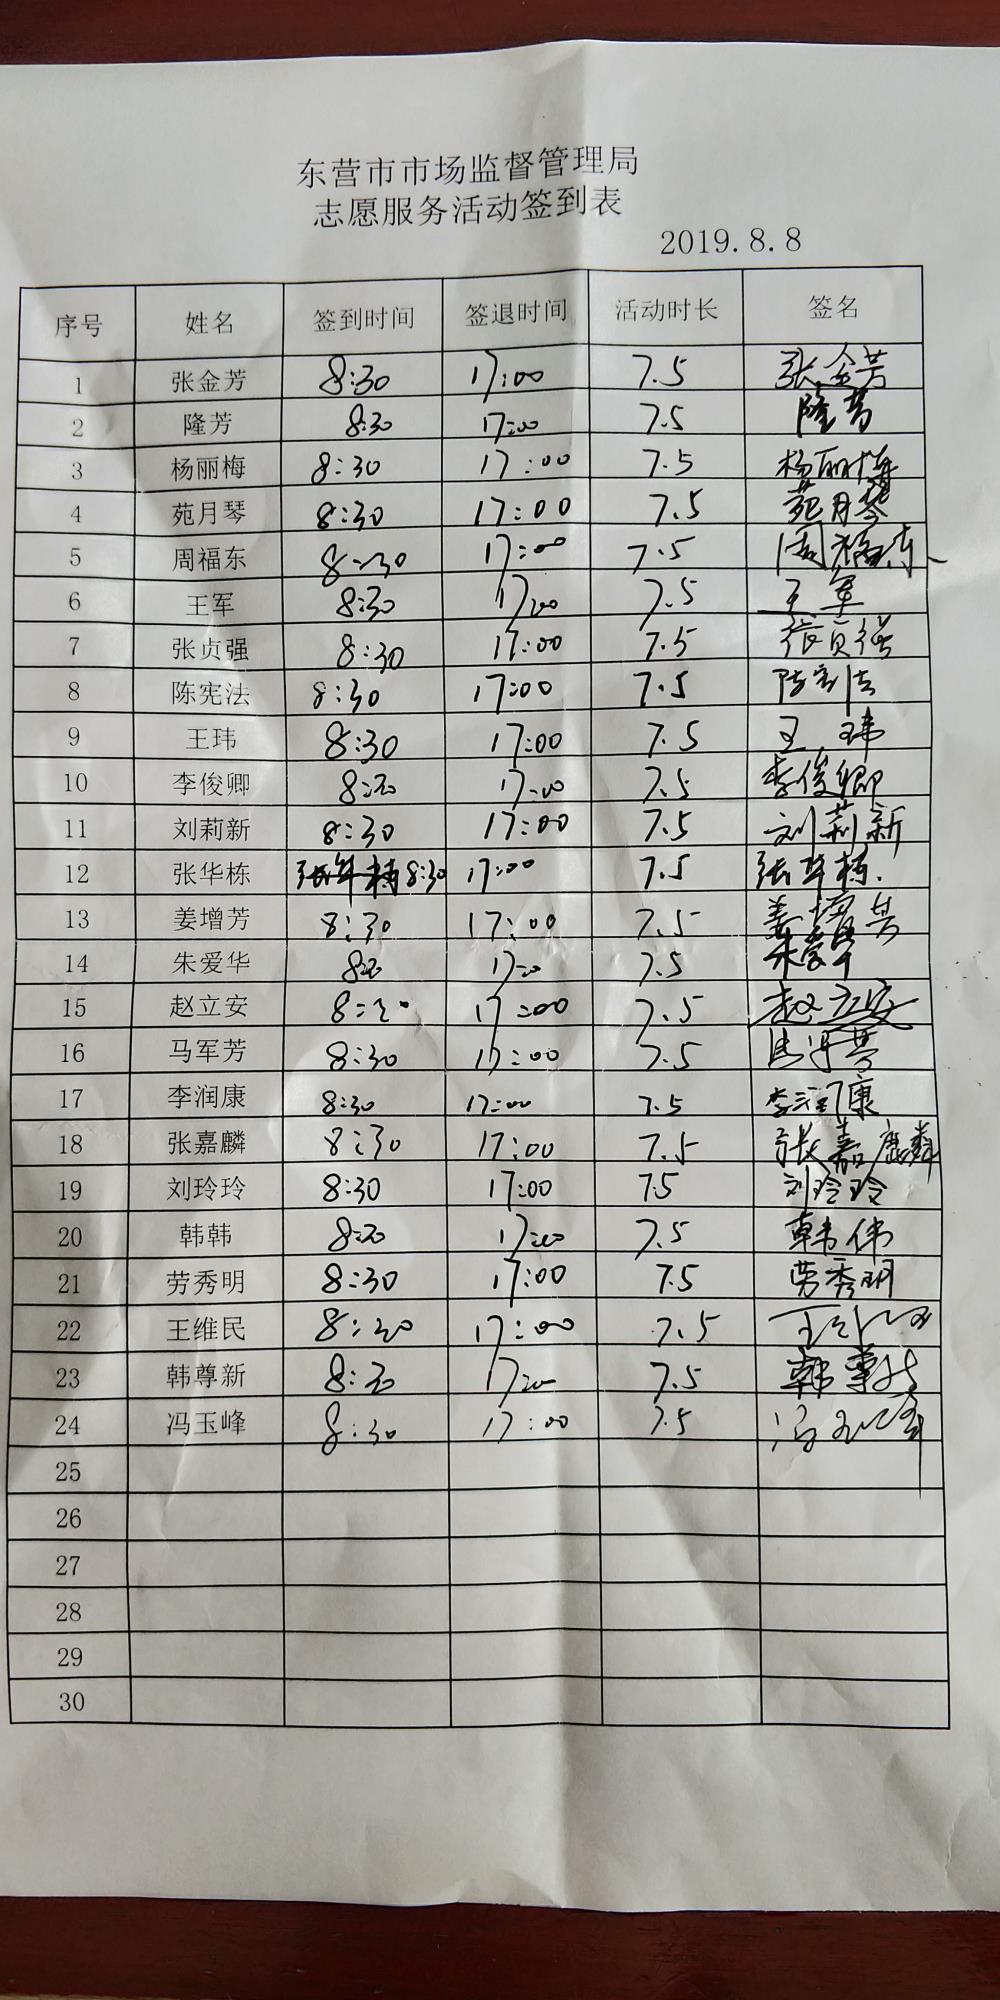 东营市市场监督管理局
志愿服务活动签到表
2019.8.8
序号 姓名 签到时间 签退时间 活动时长 签名
1 张金芳 8:30 17:00 7.5 张金芳
2 隆芳 8:30 17:00 7.5 隆芳
3 杨丽梅 8:30 17:00 7.5 杨丽梅
4 苑月琴 8:30 17:00 7.5 苑月琴
5 周福东 8:30 17:00 7.5 周福东
6 王军 8:30 17:00 7.5 王军
7 张贞强 8:30 17:00 7.5 张贞强
8 陈宪法 8:30 17:00 7.5 陈宪法
9 王玮 8:30 17:00 7.5 王玮
10 李俊卿 8:30 17:00 7.5 李俊卿
11 刘莉新 8:30 17:00 7.5 刘莉新
12 张华栋 张华栋 8:30 17:00 7.5 张华栋.
13 姜增芳 8:30 17:00 7.5 姜增芳
14 朱爱华 8:30 17:00 7.5 朱爱华
15 赵立安 8:30 17:00 7.5 赵立安
16 马军芳 8:30 17:00 7.5 马军芳
17 李润康 8:30 17:00 7.5 李润康
18 张嘉麟 8:30 17:00 7.5 张嘉麟
19 刘玲玲 8:30 17:00 7.5 刘玲玲
20 韩韩 8:30 17:00 7.5 韩伟
21 劳秀明 8:30 17:00 7.5 劳秀明
22 王维民 8:30 17:00 7.5
23 韩尊新 8:30 17:00 7.5 韩尊新
24 冯玉峰 8:30 17:00 7.5 冯玉峰
25
26
27
28
29
30